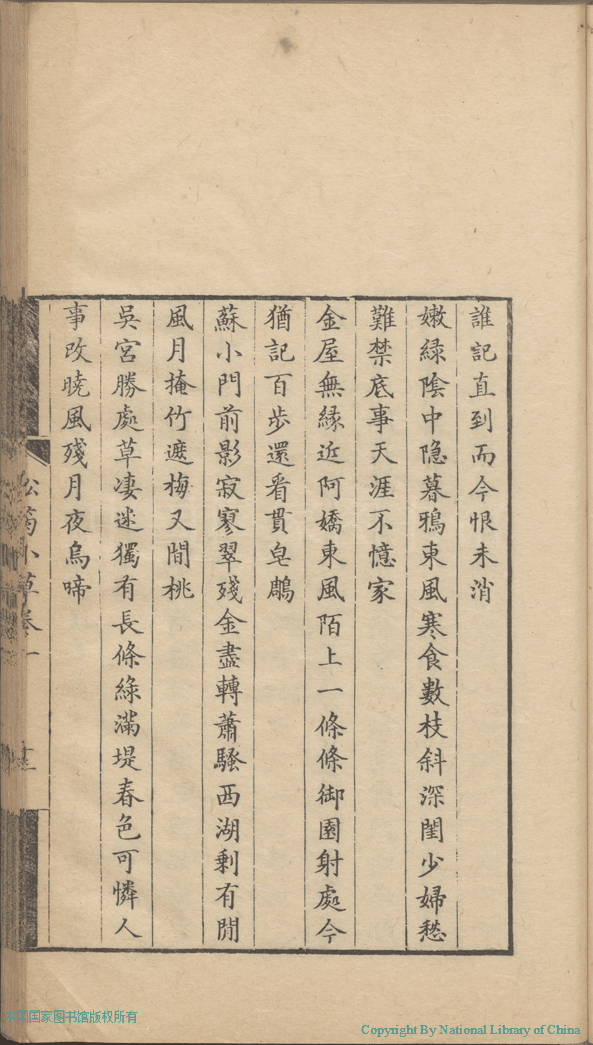 誰記直到而今恨未消
嫩緑陰中隐暮鴉東風寒食數枝斜深閨少婦愁
難禁底事天涯不憶家
金屋無縁近阿嬌東風陌上一條條御園射處今
猶記百歩還看貫皂鵰
蘇小門前影寂寥翠殘金盡轉蕭騷西湖剩有閒
風月掩竹遮梅又間桃
吳宮勝處草凄迷獨有長條綠滿堤春色可憐人
事改曉風殘月夜烏啼
松筠小草卷一
中国国家图书馆版权所有
Copyright By National Library of China